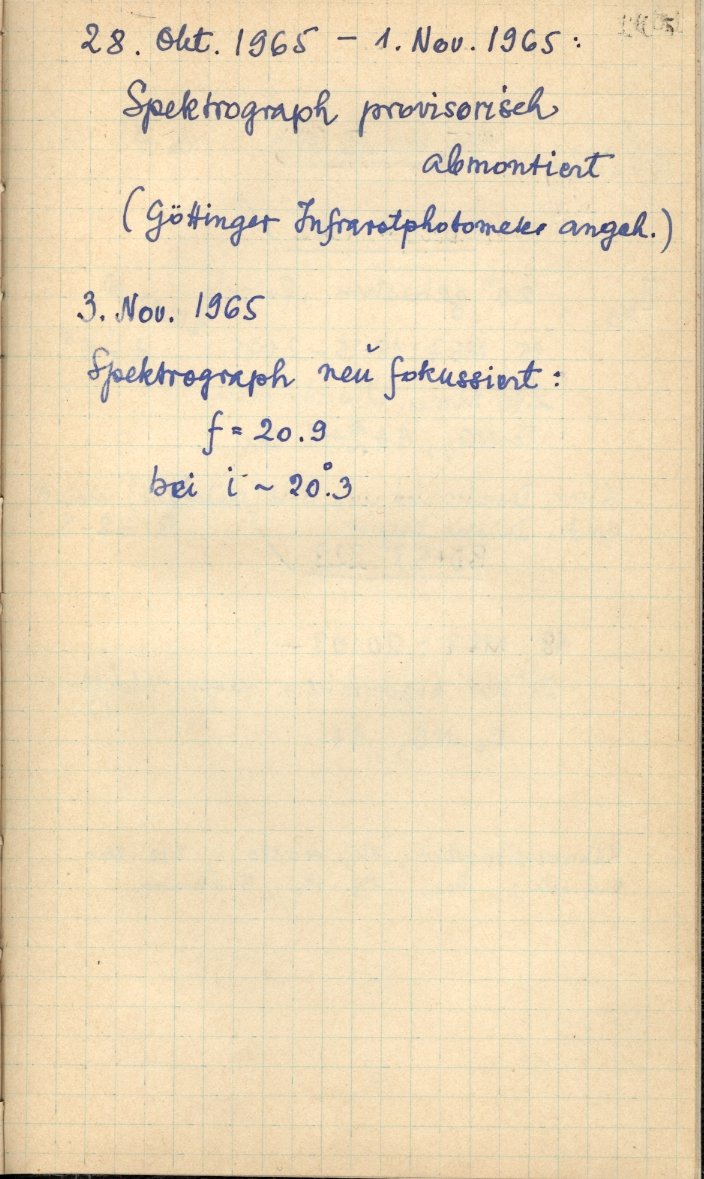 28. Okt. 1965 – 1. Nov. 1965:
Spektrograph provisorisch
abmontiert
(Göttinger Infrarotphotometer angeh.)
3. Nov. 1965
Spektrograph neu fokussiert:
f = 20.9
bei i ~ 20°.3